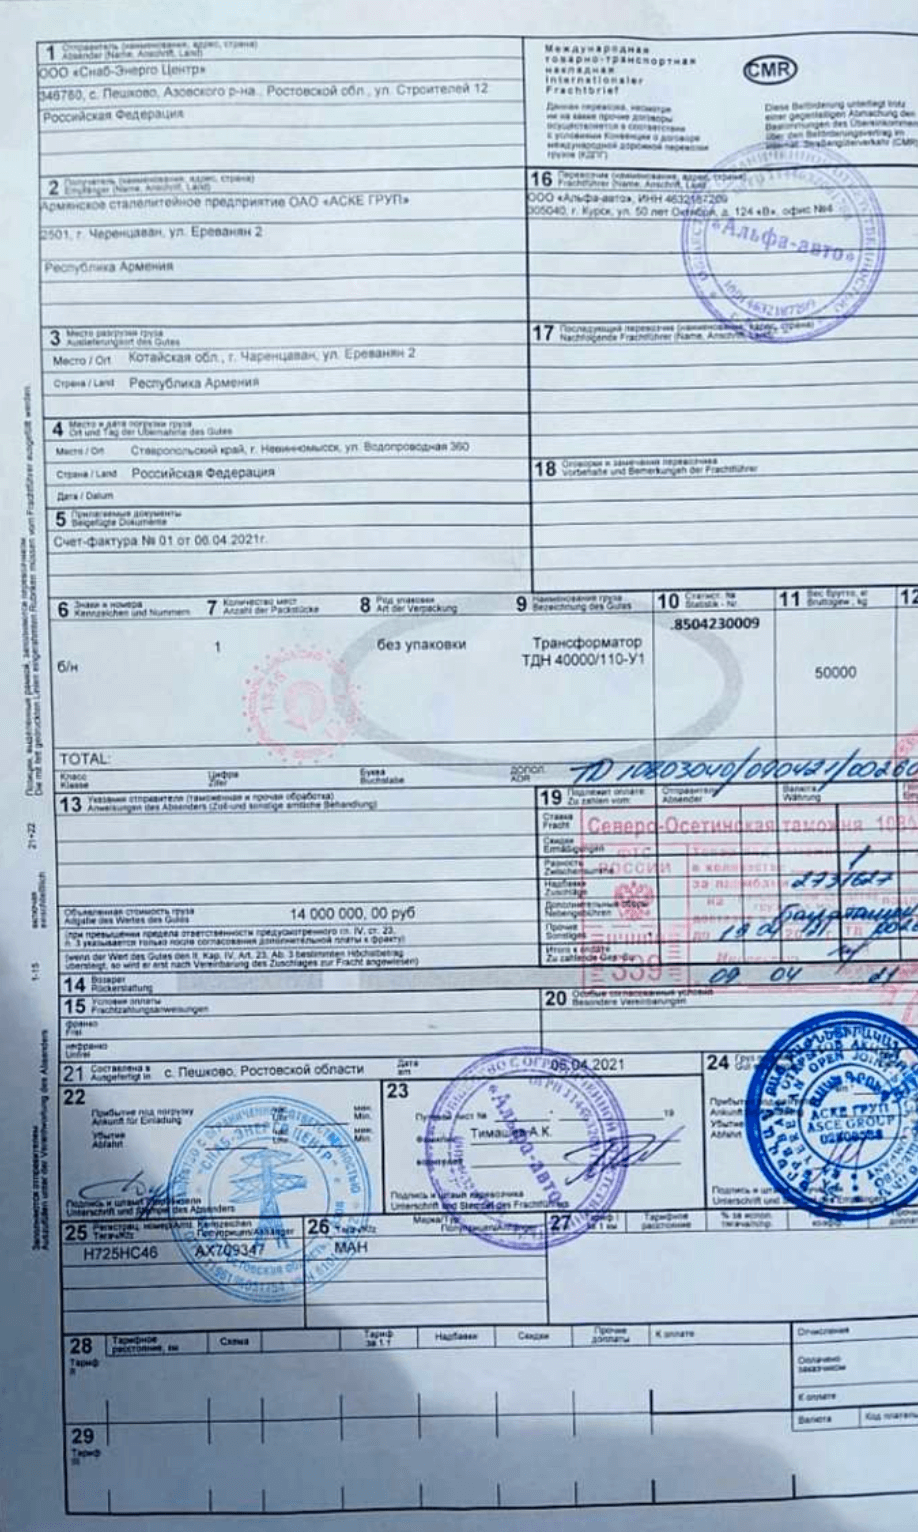 1 Отправитель (наименование, адрес, страна)
Absender (Name, Anschrift, Land)
ООО «Снаб-Энерго Центр»
346760, с. Пешково, Азовского р-на., Ростовской обл., ул. Строителей 12
Российская Федерация
Международная
товарно-транспортная
накладная
Internationaler
Frachtbrief
CMR
Данная перевозка, несмотря
ни на какие прочие договоры
осуществляется в соответствии
с условиями Конвенции о договоре
международной дорожной перевозки
грузов (КДПГ)
Diese Beförderung unterliegt trotz
einer gegenteiligen Abmachung den
Bestimmungen des Übereinkommens
über den Beförderungsvertrag im
internat. Straßengüterverkehr (CMR)
2 Получатель (наименование, адрес, страна)
Empfänger (Name, Anschrift, Land)
Армянское сталелитейное предприятие ОАО «АСКЕ ГРУП»
2501, г. Черенцаван, ул. Ереванян 2
Республика Армения
16 Перевозчик (наименование, адрес, страна)
Frachtführer (Name, Anschrift, Land)
ООО «Альфа-авто», ИНН 4632187209
305040, г. Курск, ул. 50 лет Октября, д. 124 «В», офис №4
«Альфа-авто»
ИНН 4632187209
3 Место разгрузки груза
Auslieferungsort des Gutes
Место / Ort Котайская обл., г. Чаренцаван, ул. Ереванян 2
Страна / Land Республика Армения
17 Последующий перевозчик (наименование, адрес, страна)
Nachfolgende Frachtführer (Name, Anschrift, Land)
4 Место и дата погрузки груза
Ort und Tag der Übernahme des Gutes
Место / Ort Ставропольский край, г. Невинномысск, ул. Водопроводная 360
Страна / Land Российская Федерация
Дата / Datum
18 Оговорки и замечания перевозчика
Vorbehalte und Bemerkungen der Frachtführer
5 Прилагаемые документы
Beigefügte Dokumente
Счет-фактура № 01 от 06.04.2021г.
6 Знаки и номера
Kennzeichen und Nummern
7 Количество мест
Anzahl der Packstücke
8 Род упаковки
Art der Verpackung
9 Наименование груза
Bezeichnung des Gutes
10 Статист. №
Statistik - Nr.
11 Вес брутто, кг
Bruttogew., kg
12
б/н
1
без упаковки
Трансформатор
ТДН 40000/110-У1
.8504230009
50000
TOTAL:
Класс
Klasse
Цифра
Ziffer
Буква
Buchstabe
ДОПОГ
ADR
ТД 10803040/090421/00260
13 Указания отправителя (таможенная и прочая обработка)
Anweisungen des Absenders (Zoll-und sonstige amtliche Behandlung)
19 Подлежит оплате
Zu zahlen vom:
Отправитель
Absender
Валюта
Währung
Ставка
Fracht
Скидки
Ermäßigungen
Разность
Zwischensumme
Надбавки
Zuschläge
Дополнительные сборы
Nebengebühren
Прочие
Sonstiges
Итого к оплате
Северо-Осетинская таможня
ФТС
РОССИИ
339
2731627
09 04 21
Объявленная стоимость груза
Angabe des Wertes des Gutes
14 000 000, 00 руб
(при превышении предела ответственности предусмотренного гл. IV, ст. 23,
п. 3 указывается только после согласования дополнительной платы к фрахту)
(wenn der Wert des Gutes den II. Kap. IV, Art. 23, Ab. 3 bestimmten Höchstbetrag
übersteigt, so wird er erst nach Vereinbarung des Zuschlages zur Fracht angewiesen)
14 Возврат
Rückerstattung
15 Условия оплаты
Frachtzahlungsanweisungen
франко
Frei
нефранко
Unfrei
20 Особые согласованные условия
Besondere Vereinbarungen
21 Составлена в
Ausgefertigt in
с. Пешково, Ростовской области
Дата
am
06.04.2021
22
Прибытие под погрузку
Ankunft für Einladung
Убытие
Abfahrt
мин.
Min.
мин.
Min.
СНАБ-ЭНЕРГО ЦЕНТР
23
Путевой лист №
19
Тимашев А.К.
«Альфа-авто»
Подпись и штамп перевозчика
Unterschrift und Stempel des Frachtführers
24
Убытие
Abfahrt
АСКЕ ГРУП
ASCE GROUP
25
26
27
Тягач/Kfz
H725HC46
AX709347
МАН
Тарифное
расстояние
28
Тарифное
расстояние, км
Схема
Тариф
за 1 т
Надбавки
Скидки
Прочие
доплаты
К оплате
Отчисления
Тариф
Оплачено
заказчиком
К оплате
Валюта
29
Тариф